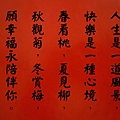 人生是一道風景，
快樂是一種心境，
春看桃，夏見柳，
秋觀菊，冬賞梅，
願幸福永陪伴你。